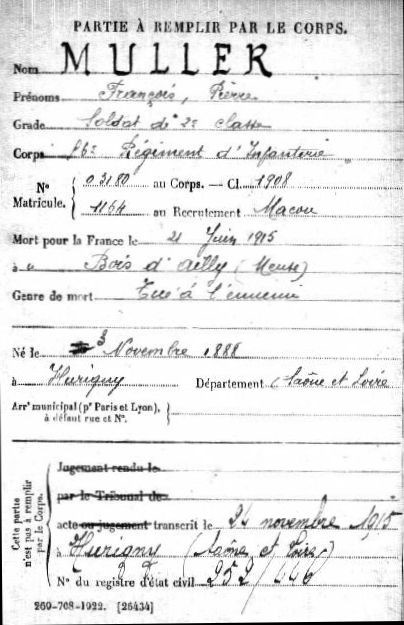 PARTIE À REMPLIR PAR LE CORPS.
Nom MULLER
Prénoms François, Pierre
Grade Soldat de 2e classe
Corps 56e Régiment d'Infanterie
N° Matricule. { 03180 au Corps. — Cl. 1908
1164 au Recrutement Macon
Mort pour la France le 21 Juin 1915
à Bois d'Ailly (Meuse)
Genre de mort Tué à l'ennemi
Né le 3 Novembre 1888
à Hurigny Département Saône et Loire
Arr' municipal (p' Paris et Lyon), à défaut rue et N°.
Cette partie n'est pas à remplir par le Corps.
Jugement rendu le
par le Tribunal de
acte ou jugement transcrit le 24 novembre 1915
à Hurigny (Saône et Loire)
N° du registre d'état civil 252/446
269-708-1922. [26434]